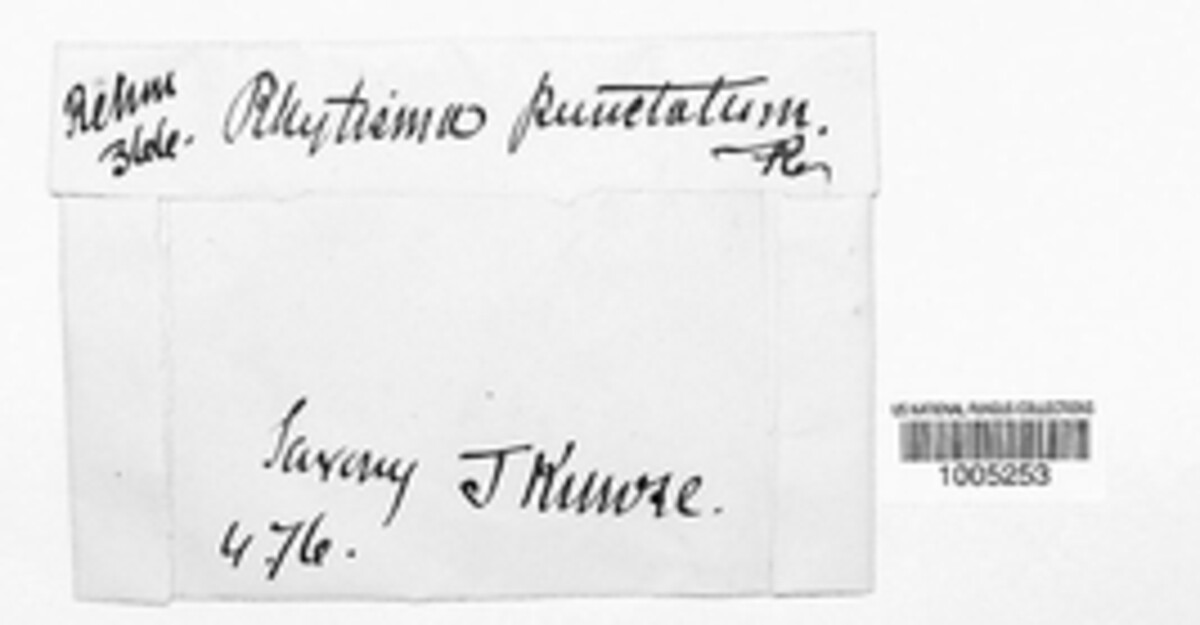 Rehm
Rhytisma punctatum.
Saxony J Kunze.
476.
US NATIONAL FUNGUS COLLECTIONS
1005253